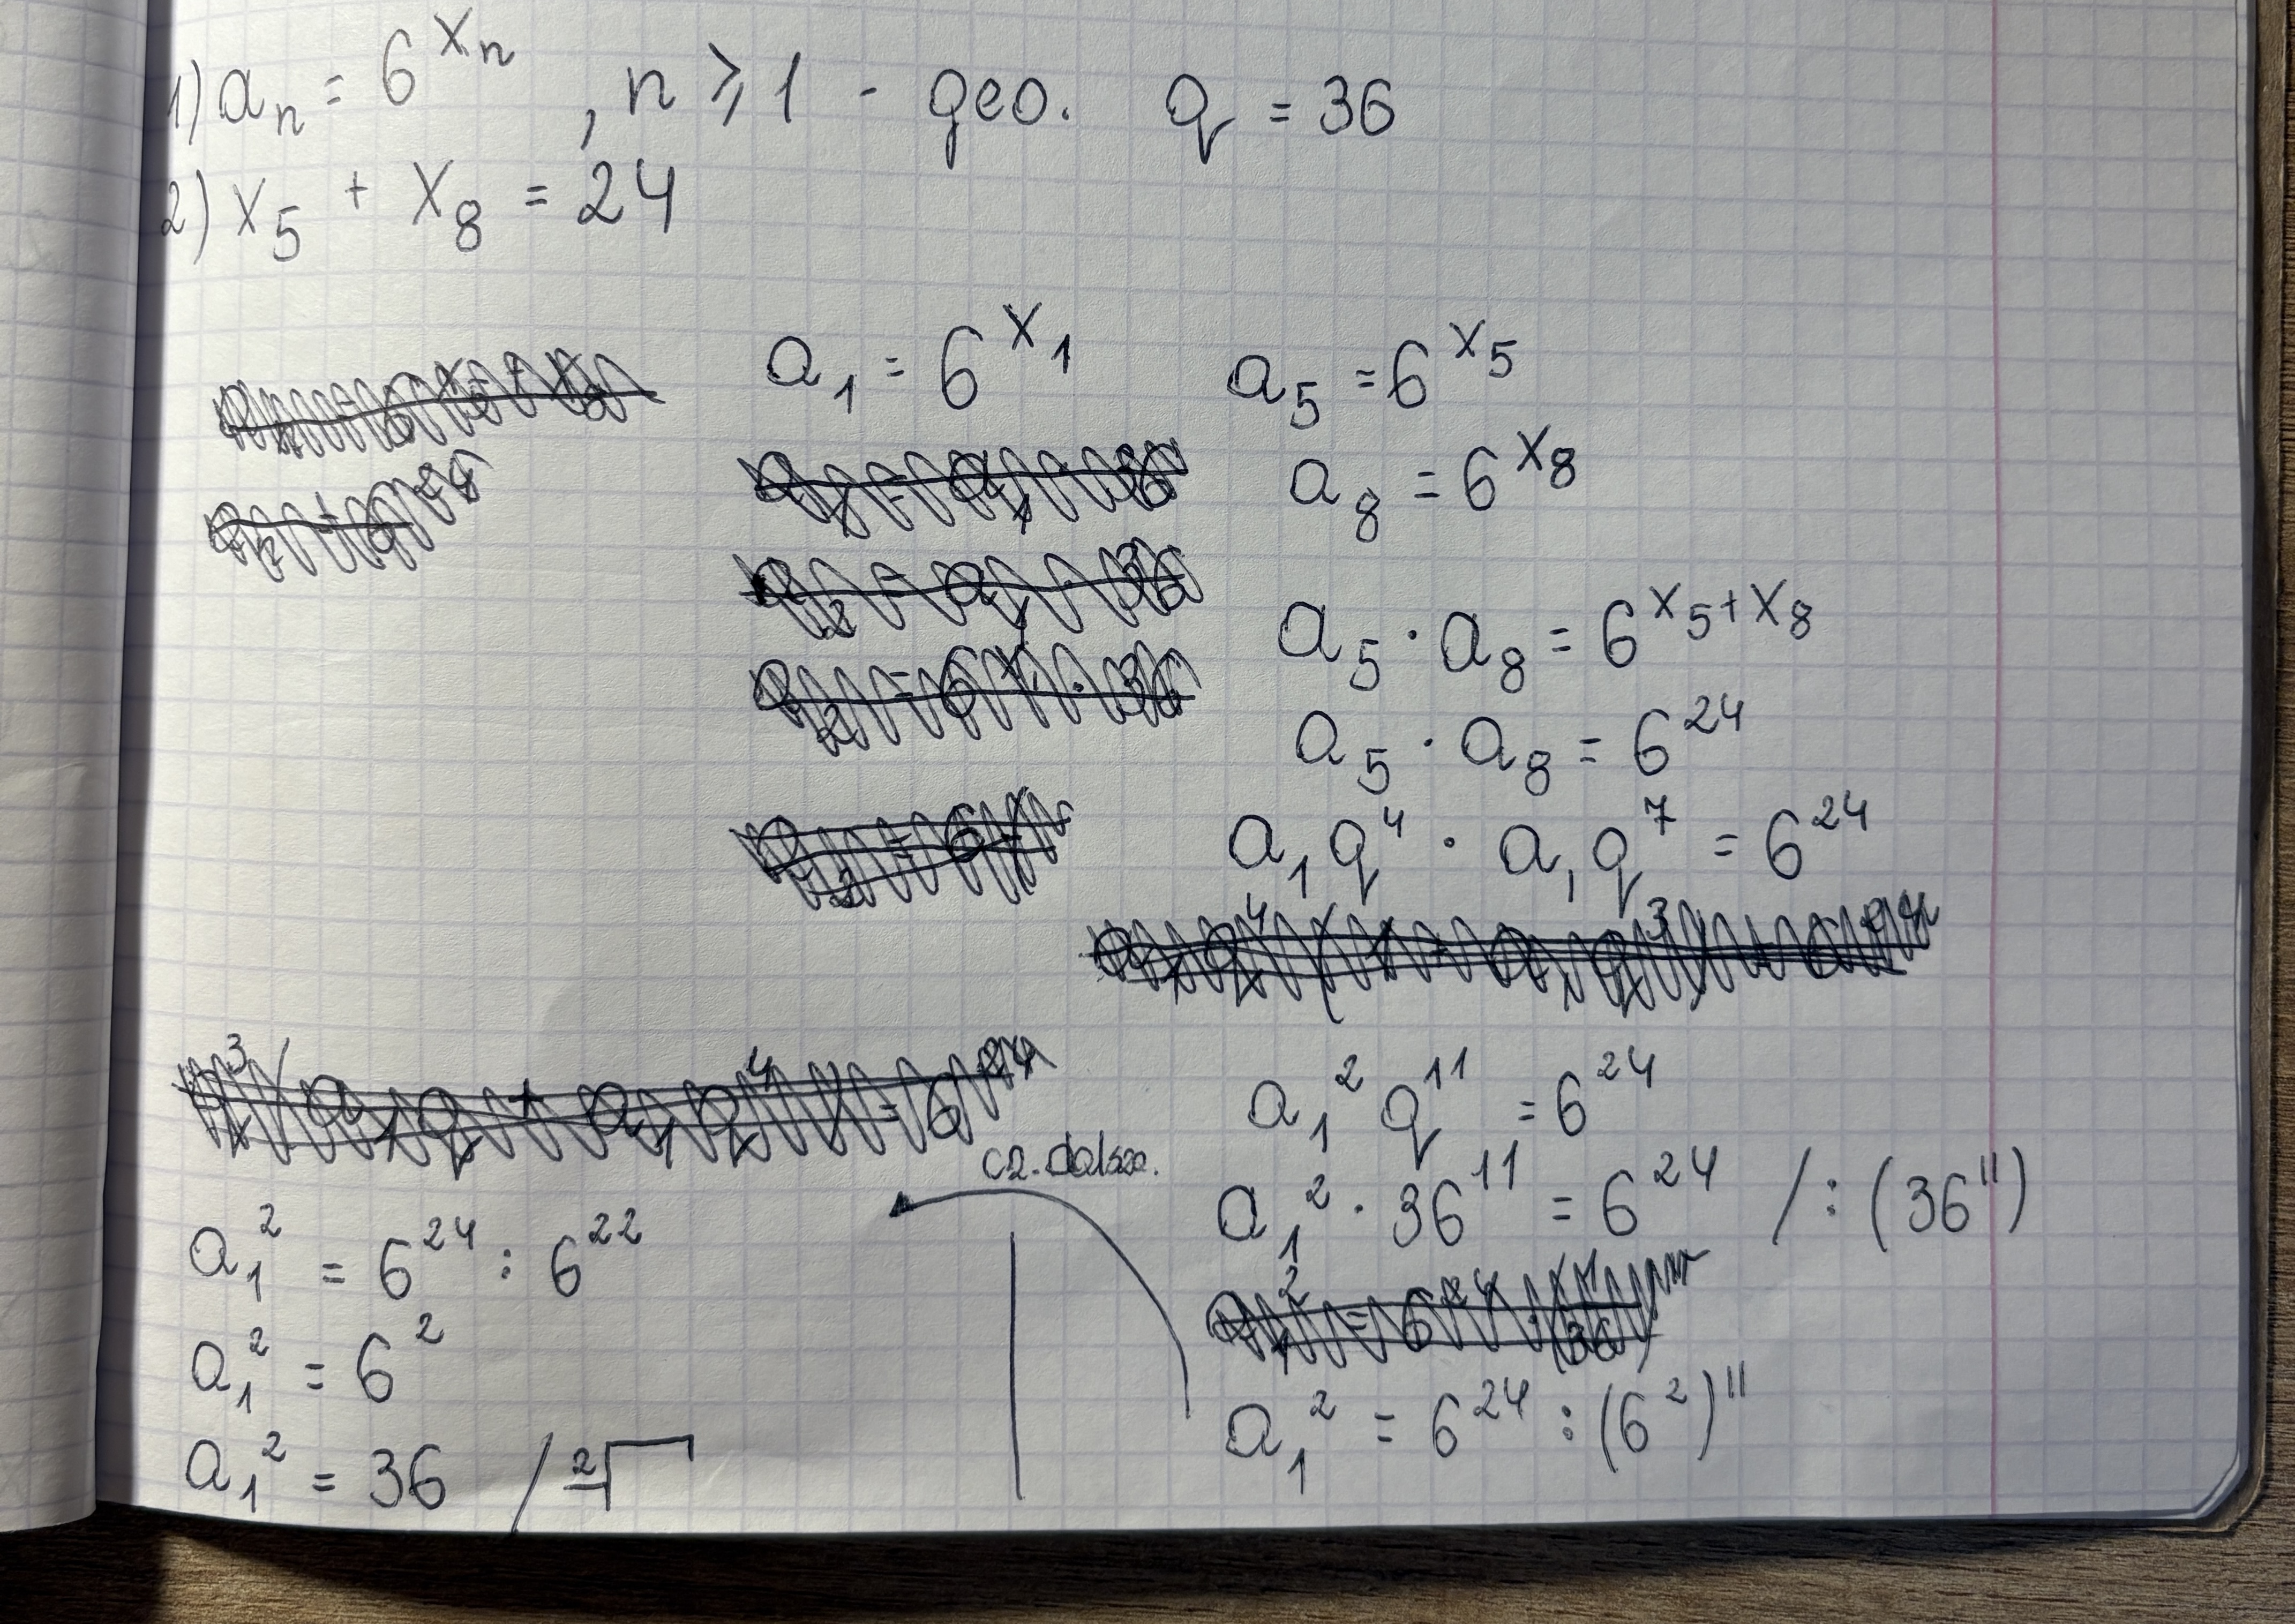 1) aₙ = 6^xₙ , n ⩾ 1 - geo. q = 36
2) x₅ + x₈ = 24
a₁ = 6^x₁
a₅ = 6^x₅
a₈ = 6^x₈
a₅ · a₈ = 6^(x₅+x₈)
a₅ · a₈ = 6²⁴
a₁q⁴ · a₁q⁷ = 6²⁴
a₁² q¹¹ = 6²⁴
a₁² · 36¹¹ = 6²⁴ / : (36¹¹)
a₁² = 6²⁴ : (6²)¹¹
cz. dalsza.
a₁² = 6²⁴ : 6²²
a₁² = 6²
a₁² = 36 / ²√